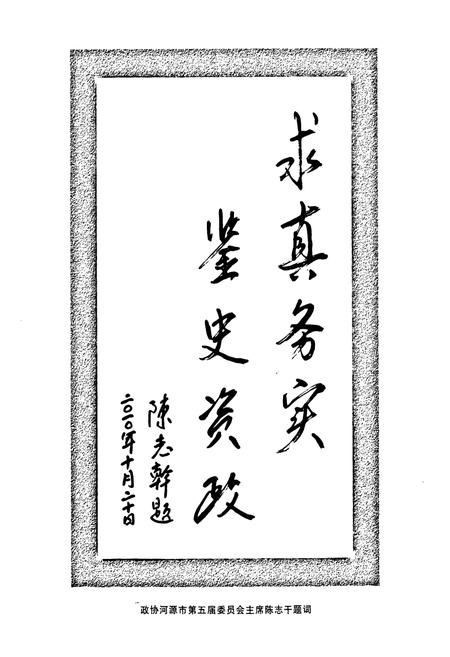 求真务实
鉴史资政
陈志幹题
二〇一〇年十月二十日
政协河源市第五届委员会主席陈志干题词